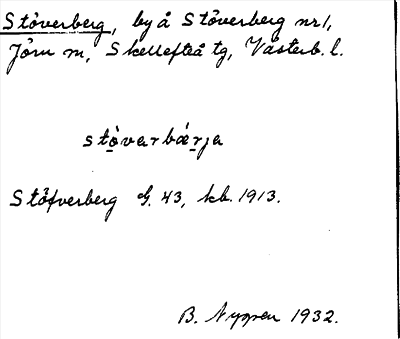 Stöverberg, by å Stöverberg nr 1,
Jörn sn, Skellefteå tg, Västerb. l.
stòvarbærja
Stöfverberg 43, kb. 1913.
B. Nygren 1932.